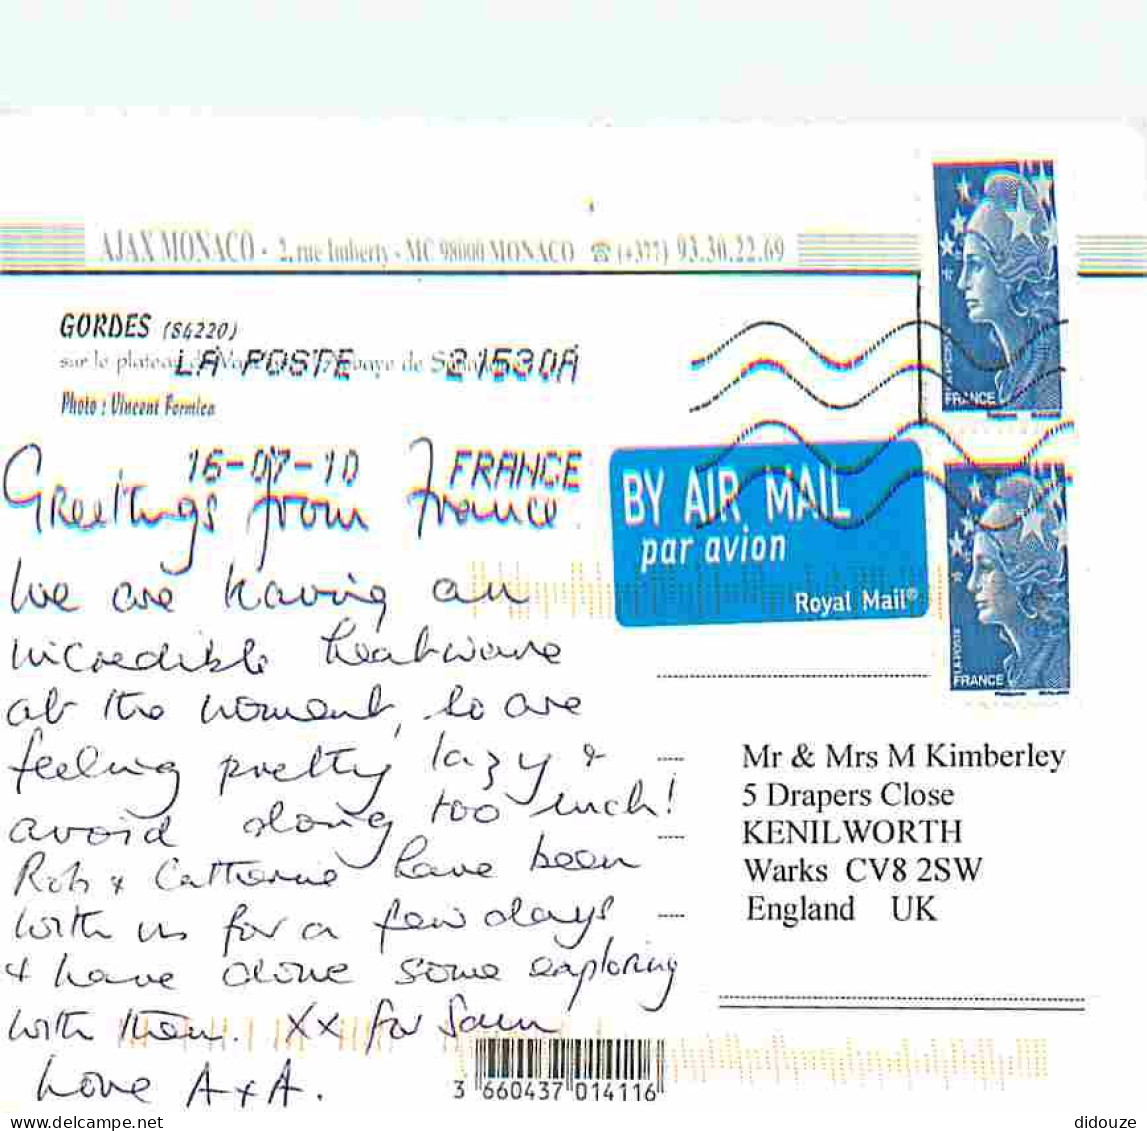 AJAX MONACO - 2, rue Imberty - MC 98000 MONACO ☎ (+377) 93.30.22.69
GORDES (84220)
sur le plateau de abbaye de
Photo : Vincent Formica
LA POSTE 21530A
16-07-10 FRANCE
Greetings from France.
We are having an
incredible heatwave
at the moment, so are
feeling pretty lazy &
avoid doing too much!
Rob & Catherine have been
with us for a few days
& have done some exploring
with them. XX for Sam
Love A & A.
BY AIR MAIL
par avion
Royal Mail®
LA POSTE
FRANCE
LA POSTE
FRANCE
Mr & Mrs M Kimberley
5 Drapers Close
KENILWORTH
Warks CV8 2SW
England UK
3 660437 014116
www.delcampe.net
didouze